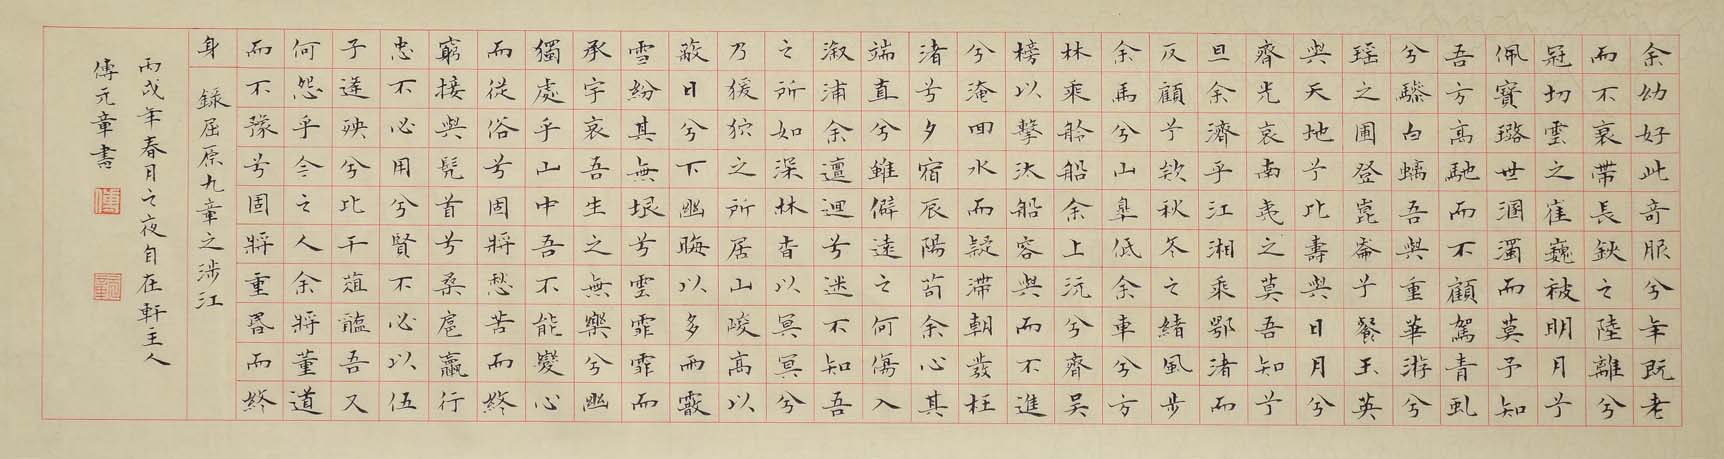 余幼好此奇服兮年既老
而不衰帶長鋏之陸離兮
冠切雲之崔巍被明月兮
佩寶璐世溷濁而莫予知
吾方高馳而不顧駕青虬
兮驂白螭吾與重華游兮
瑶之圃登崑崙兮餐玉英
與天地兮比壽與日月兮
齊光哀南夷之莫吾知兮
旦余濟乎江湘乘鄂渚而
反顧兮欸秋冬之緒風步
余馬兮山皋低余車兮方
林乘舲船余上沅兮齊吳
榜以擊汰船容與而不進
兮淹回水而疑滯朝發枉
渚兮夕宿辰陽苟余心其
端直兮雖僻遠之何傷入
溆浦余邅迴兮迷不知吾
之所如深林杳以冥冥兮
乃猨狖之所居山峻高以
蔽日兮下幽晦以多雨霰
雪紛其無垠兮雲霏霏而
承宇哀吾生之無樂兮幽
獨處乎山中吾不能變心
而從俗兮固將愁苦而終
窮接與髡首兮桑扈臝行
忠不必用兮賢不必以伍
子逢殃兮比干菹醢吾又
何怨乎今之人余將董道
而不豫兮固將重昏而終
身 錄屈原九章之涉江
丙戌年春月之夜自在軒主人
傅元章書
傅
元章